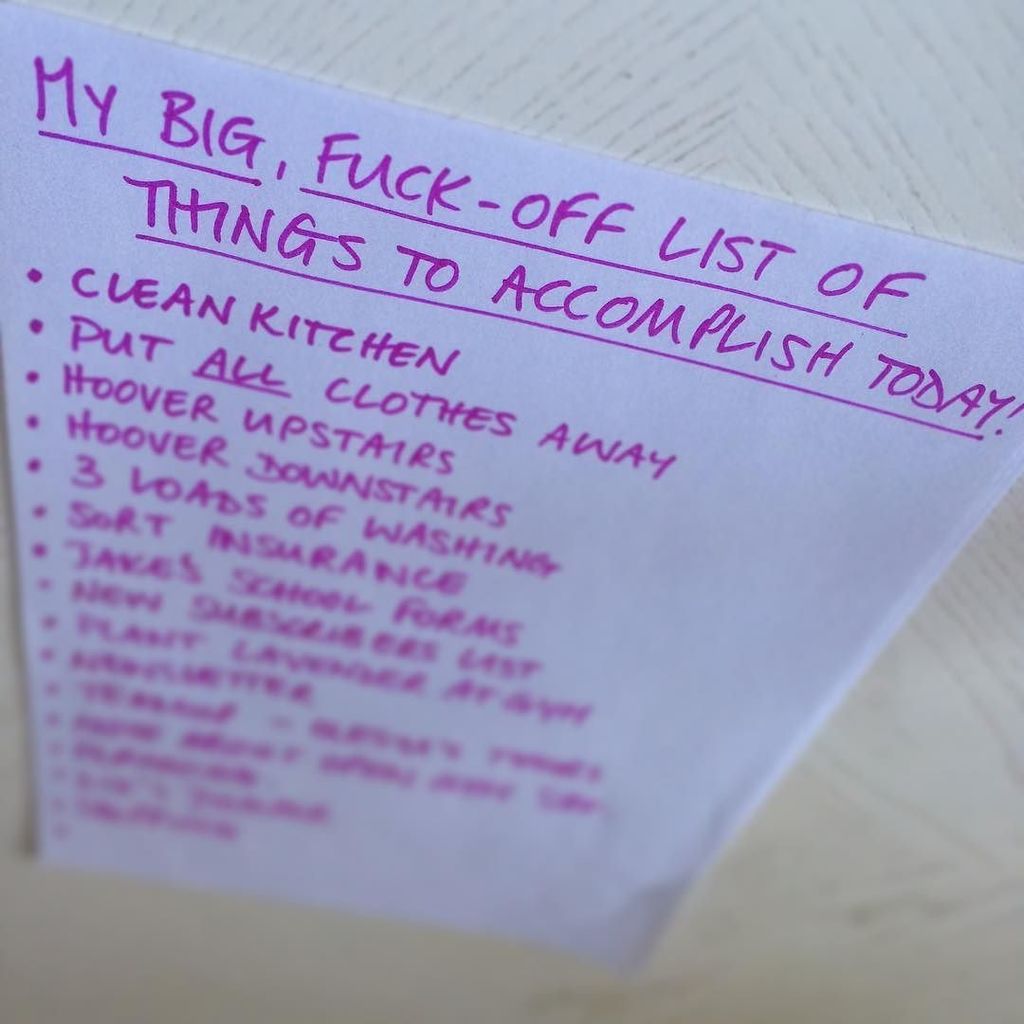 MY BIG, FUCK-OFF LIST OF
THINGS TO ACCOMPLISH TODAY!
• CLEAN KITCHEN
• PUT ALL CLOTHES AWAY
• HOOVER UPSTAIRS
• HOOVER DOWNSTAIRS
• 3 LOADS OF WASHING
• SORT INSURANCE
• JAKE'S SCHOOL FORMS
• NEW SUBSCRIBERS LIST
• PLANT LAVENDER AT GYM
• NEWSLETTER